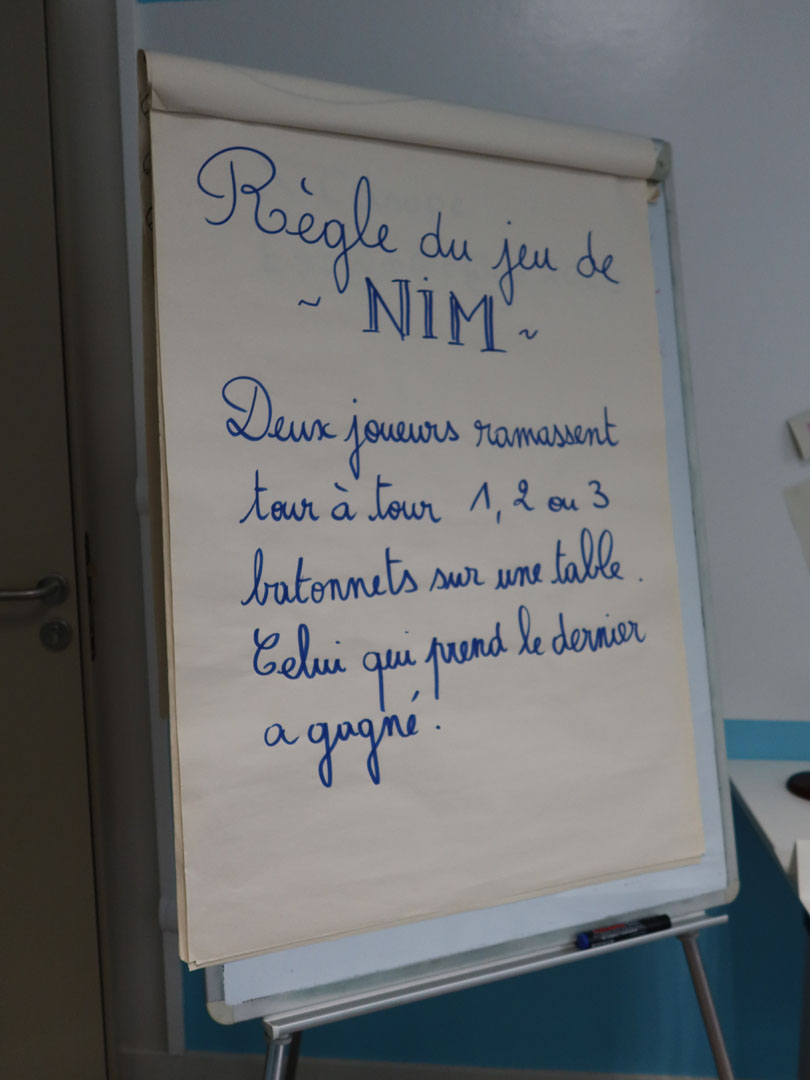 Règle du jeu de
~ NiM ~
Deux joueurs ramassent
tour à tour 1, 2 ou 3
batonnets sur une table.
Celui qui prend le dernier
a gagné.